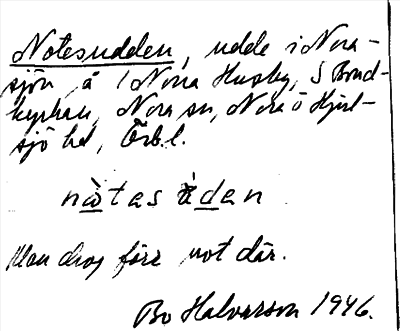 Notesudden, udde i Nora-
sjön, å 1 Norra Husby, S Bond-
kyrkan, Nora sn, Nora o Hjul-
sjö hd, Örb. l.
nòtas údan
Man drog förr not där.
Bo Halvarson 1946.